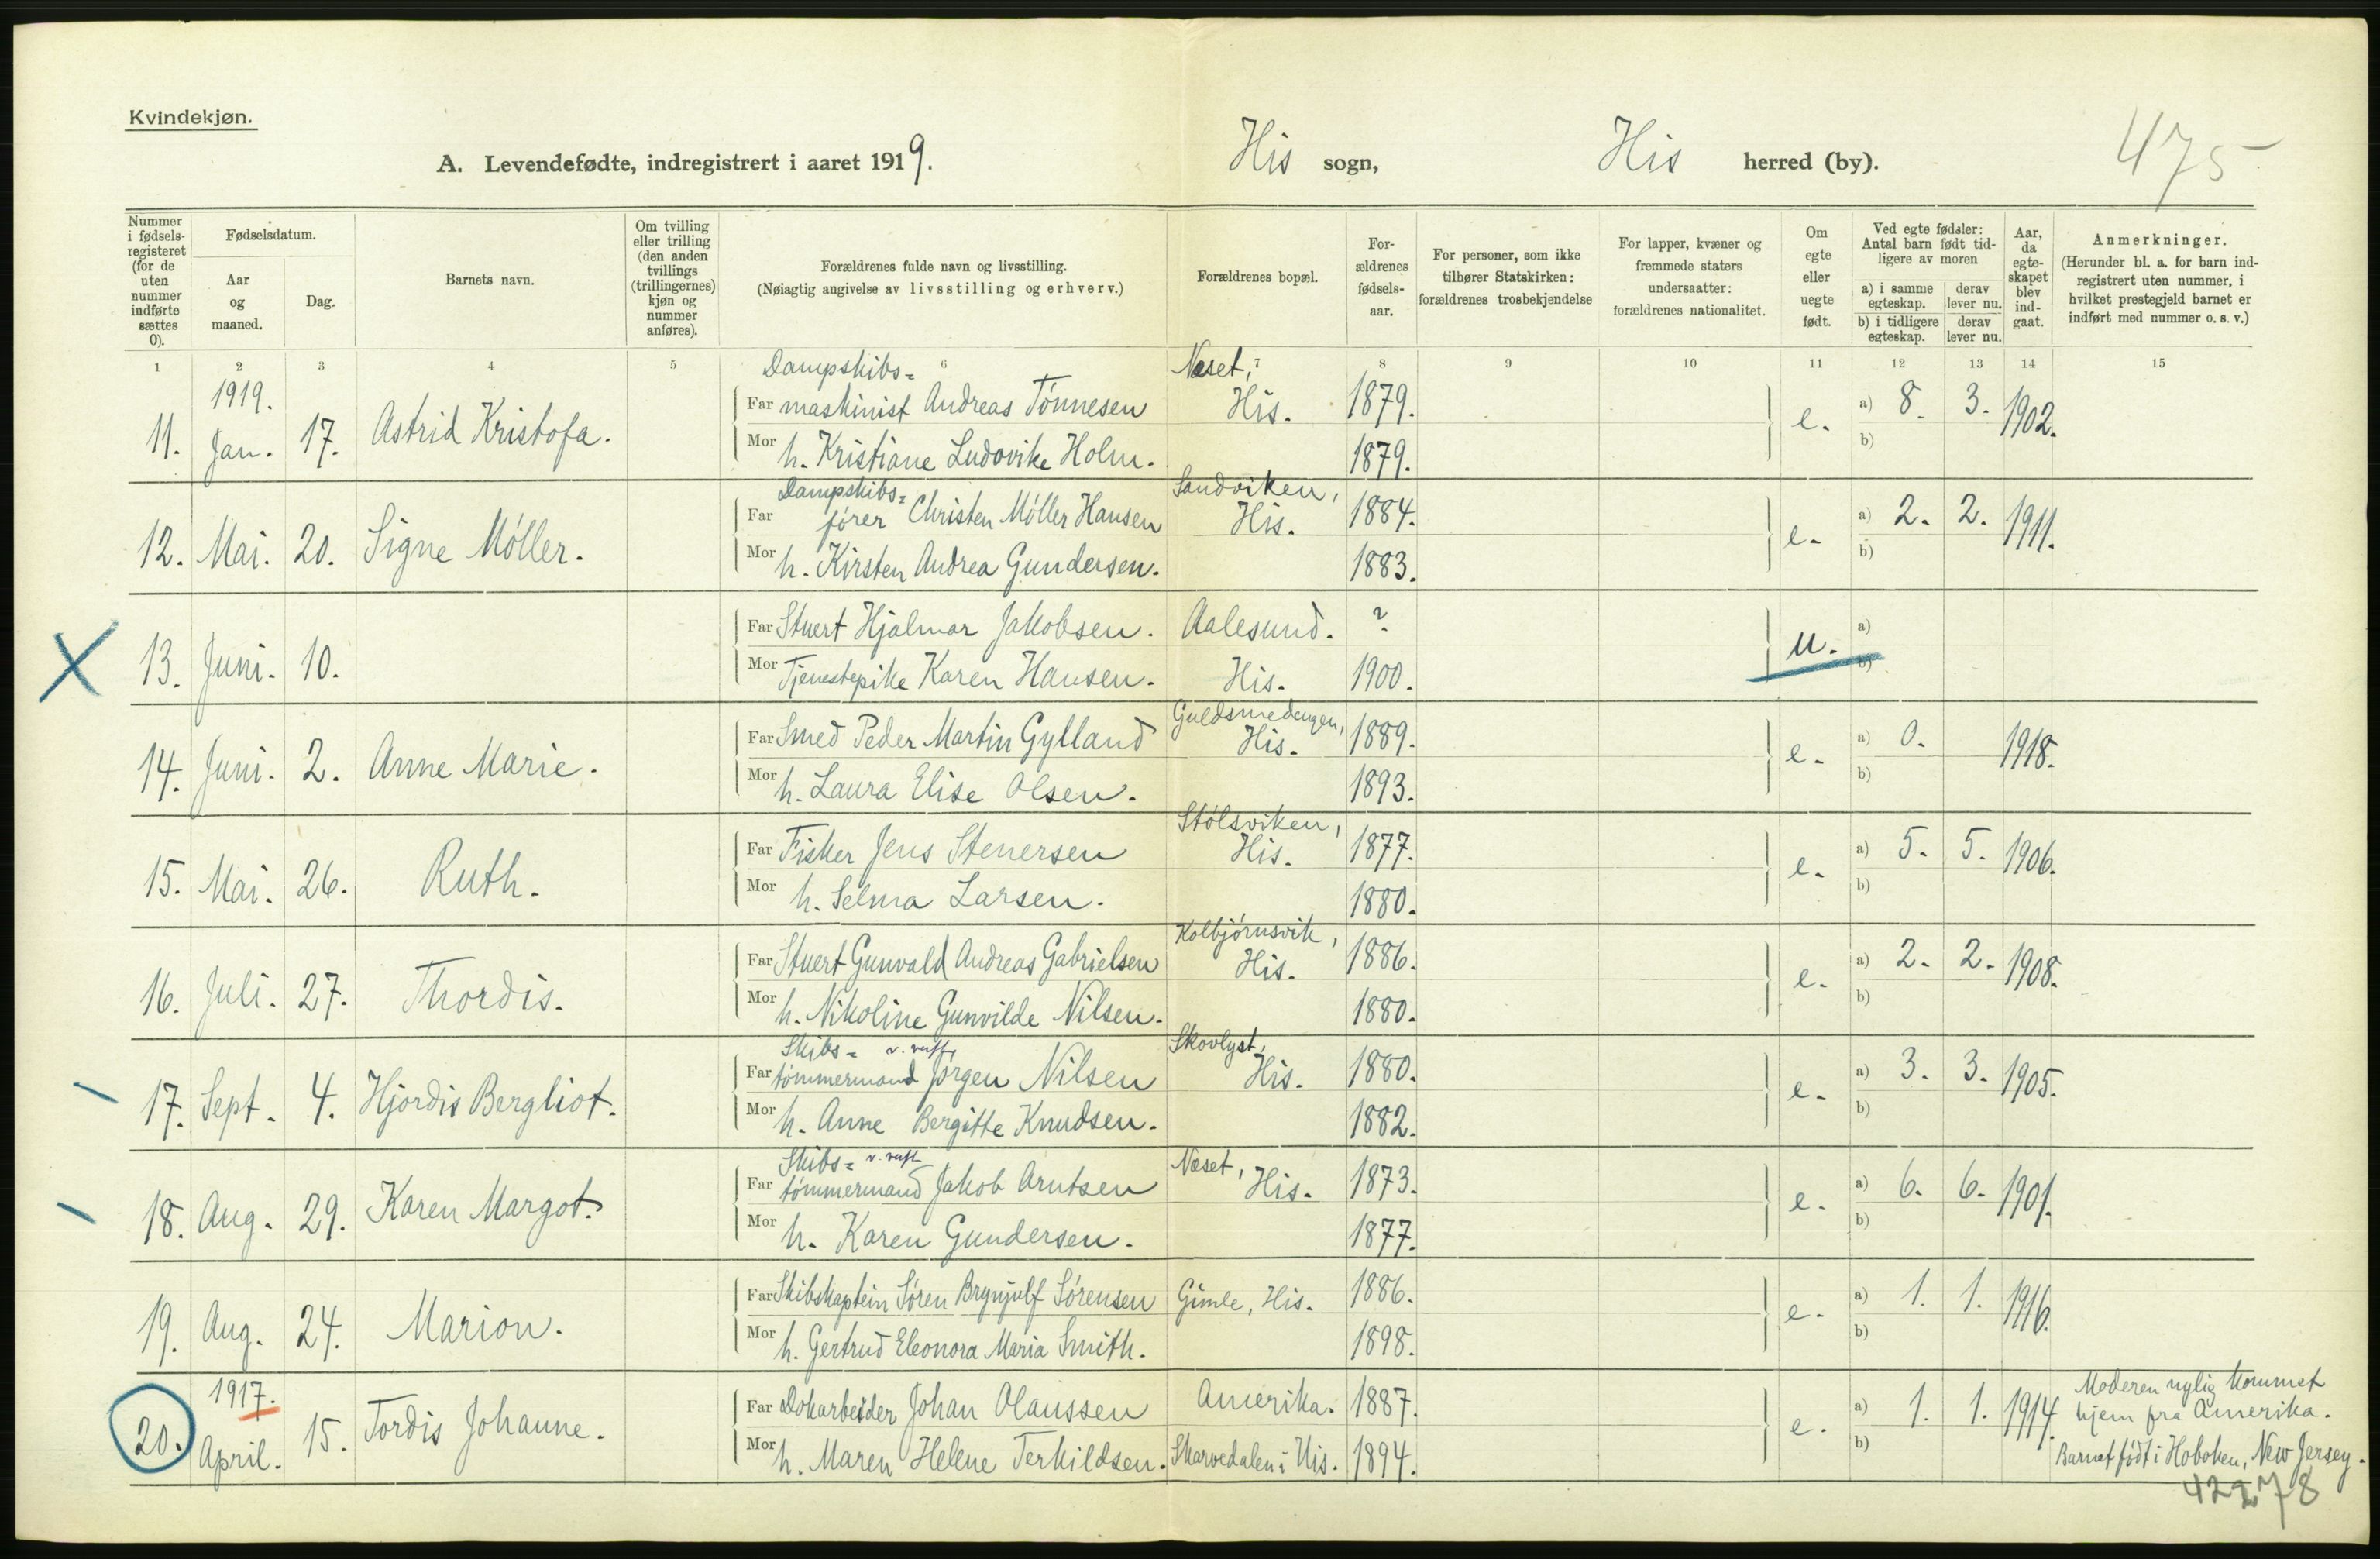 Kvindekjøn.
A. Levendefødte, indregistrert i aaret 1919.
His sogn, His herred (by).
475
Nummer i fødsels-registeret (for de uten nummer indførte sættes 0).
Fødselsdatum.
Aar og maaned.
Dag.
Barnets navn.
Om tvilling eller trilling (den anden tvillings (trillingernes) kjøn og nummer anføres).
Forældrenes fulde navn og livsstilling.
(Nøiagtig angivelse av livsstilling og erhverv.)
Forældrenes bopæl.
For-ældrenes fødsels-aar.
For personer, som ikke tilhører Statskirken: forældrenes trosbekjendelse
For lapper, kvæner og fremmede staters undersaatter: forældrenes nationalitet.
Om egte eller uegte født.
Ved egte fødsler: Antal barn født tid-ligere av moren
a) i samme egteskap.
derav lever nu.
b) i tidligere egteskap.
derav lever nu.
Aar, da egte-skapet blev ind-gaat.
Anmerkninger.
(Herunder bl. a. for barn ind-registrert uten nummer, i hvilket prestegjeld barnet er indført med nummer o. s. v.)
1 2 3 4 5 6 7 8 9 10 11 12 13 14 15
1919.
Dampskibs= Næset,
11. Jan. 17. Astrid Kristofa. Far maskinist Andreas Tönnesen His. 1879. e. a) 8. 3. 1902.
Mor h. Kristiane Ludovike Holm. 1879. b)
Dampskibs= Sandviken,
12. Mai. 20. Signe Möller. Far förer Christen Möller Hansen His. 1884. e. a) 2. 2. 1911.
Mor h. Kirsten Andrea Gundersen. 1883. b)
X 13. Juni. 10. Far Stuert Hjalmar Jakobsen. Aalesund. ? u. a)
Mor Tjenestepike Karen Hansen. His. 1900. b)
Guldsmedengen,
14. Juni. 2. Anne Marie. Far Smed Peder Martin Gylland His. 1889. e. a) 0. 1918.
Mor h. Laura Elise Olsen. 1893. b)
Stölsviken,
15. Mai. 26. Ruth. Far Fisker Jens Stenersen His. 1877. e. a) 5. 5. 1906.
Mor h. Selma Larsen. 1880. b)
Kolbjörnsvik,
16. Juli. 27. Thordis. Far Stuert Gunvald Andreas Gabrielsen His. 1886. e. a) 2. 2. 1908.
Mor h. Nikoline Gunvilde Nilsen. 1880. b)
Skibs= Skovlyst,
17. Sept. 4. Hjördis Bergliot. Far tömmermand Jörgen Nilsen His. 1880. e. a) 3. 3. 1905.
Mor h. Anne Bergitte Knudsen. 1882. b)
Skibs= Næset,
18. Aug. 29. Karen Margot. Far tömmermand Jakob Arntsen His. 1873. e. a) 6. 6. 1901.
Mor h. Karen Gundersen. 1877. b)
19. Aug. 24. Marion. Far Skibskaptein Sören Brynjulf Sörensen Gimle, His. 1886. e. a) 1. 1. 1916.
Mor h. Gertrud Eleonora Maria Smith. 1898. b)
1917.
20. April. 15. Tordis Johanne. Far Dokarbeider Johan Olaussen Amerika. 1887. e. a) 1. 1. 1914. Moderen nylig kommet
hjem fra Amerika.
Mor h. Maren Helene Terkildsen. Skarvedalen i His. 1894. b) Barnet födt i Hoboken, New Jersey.